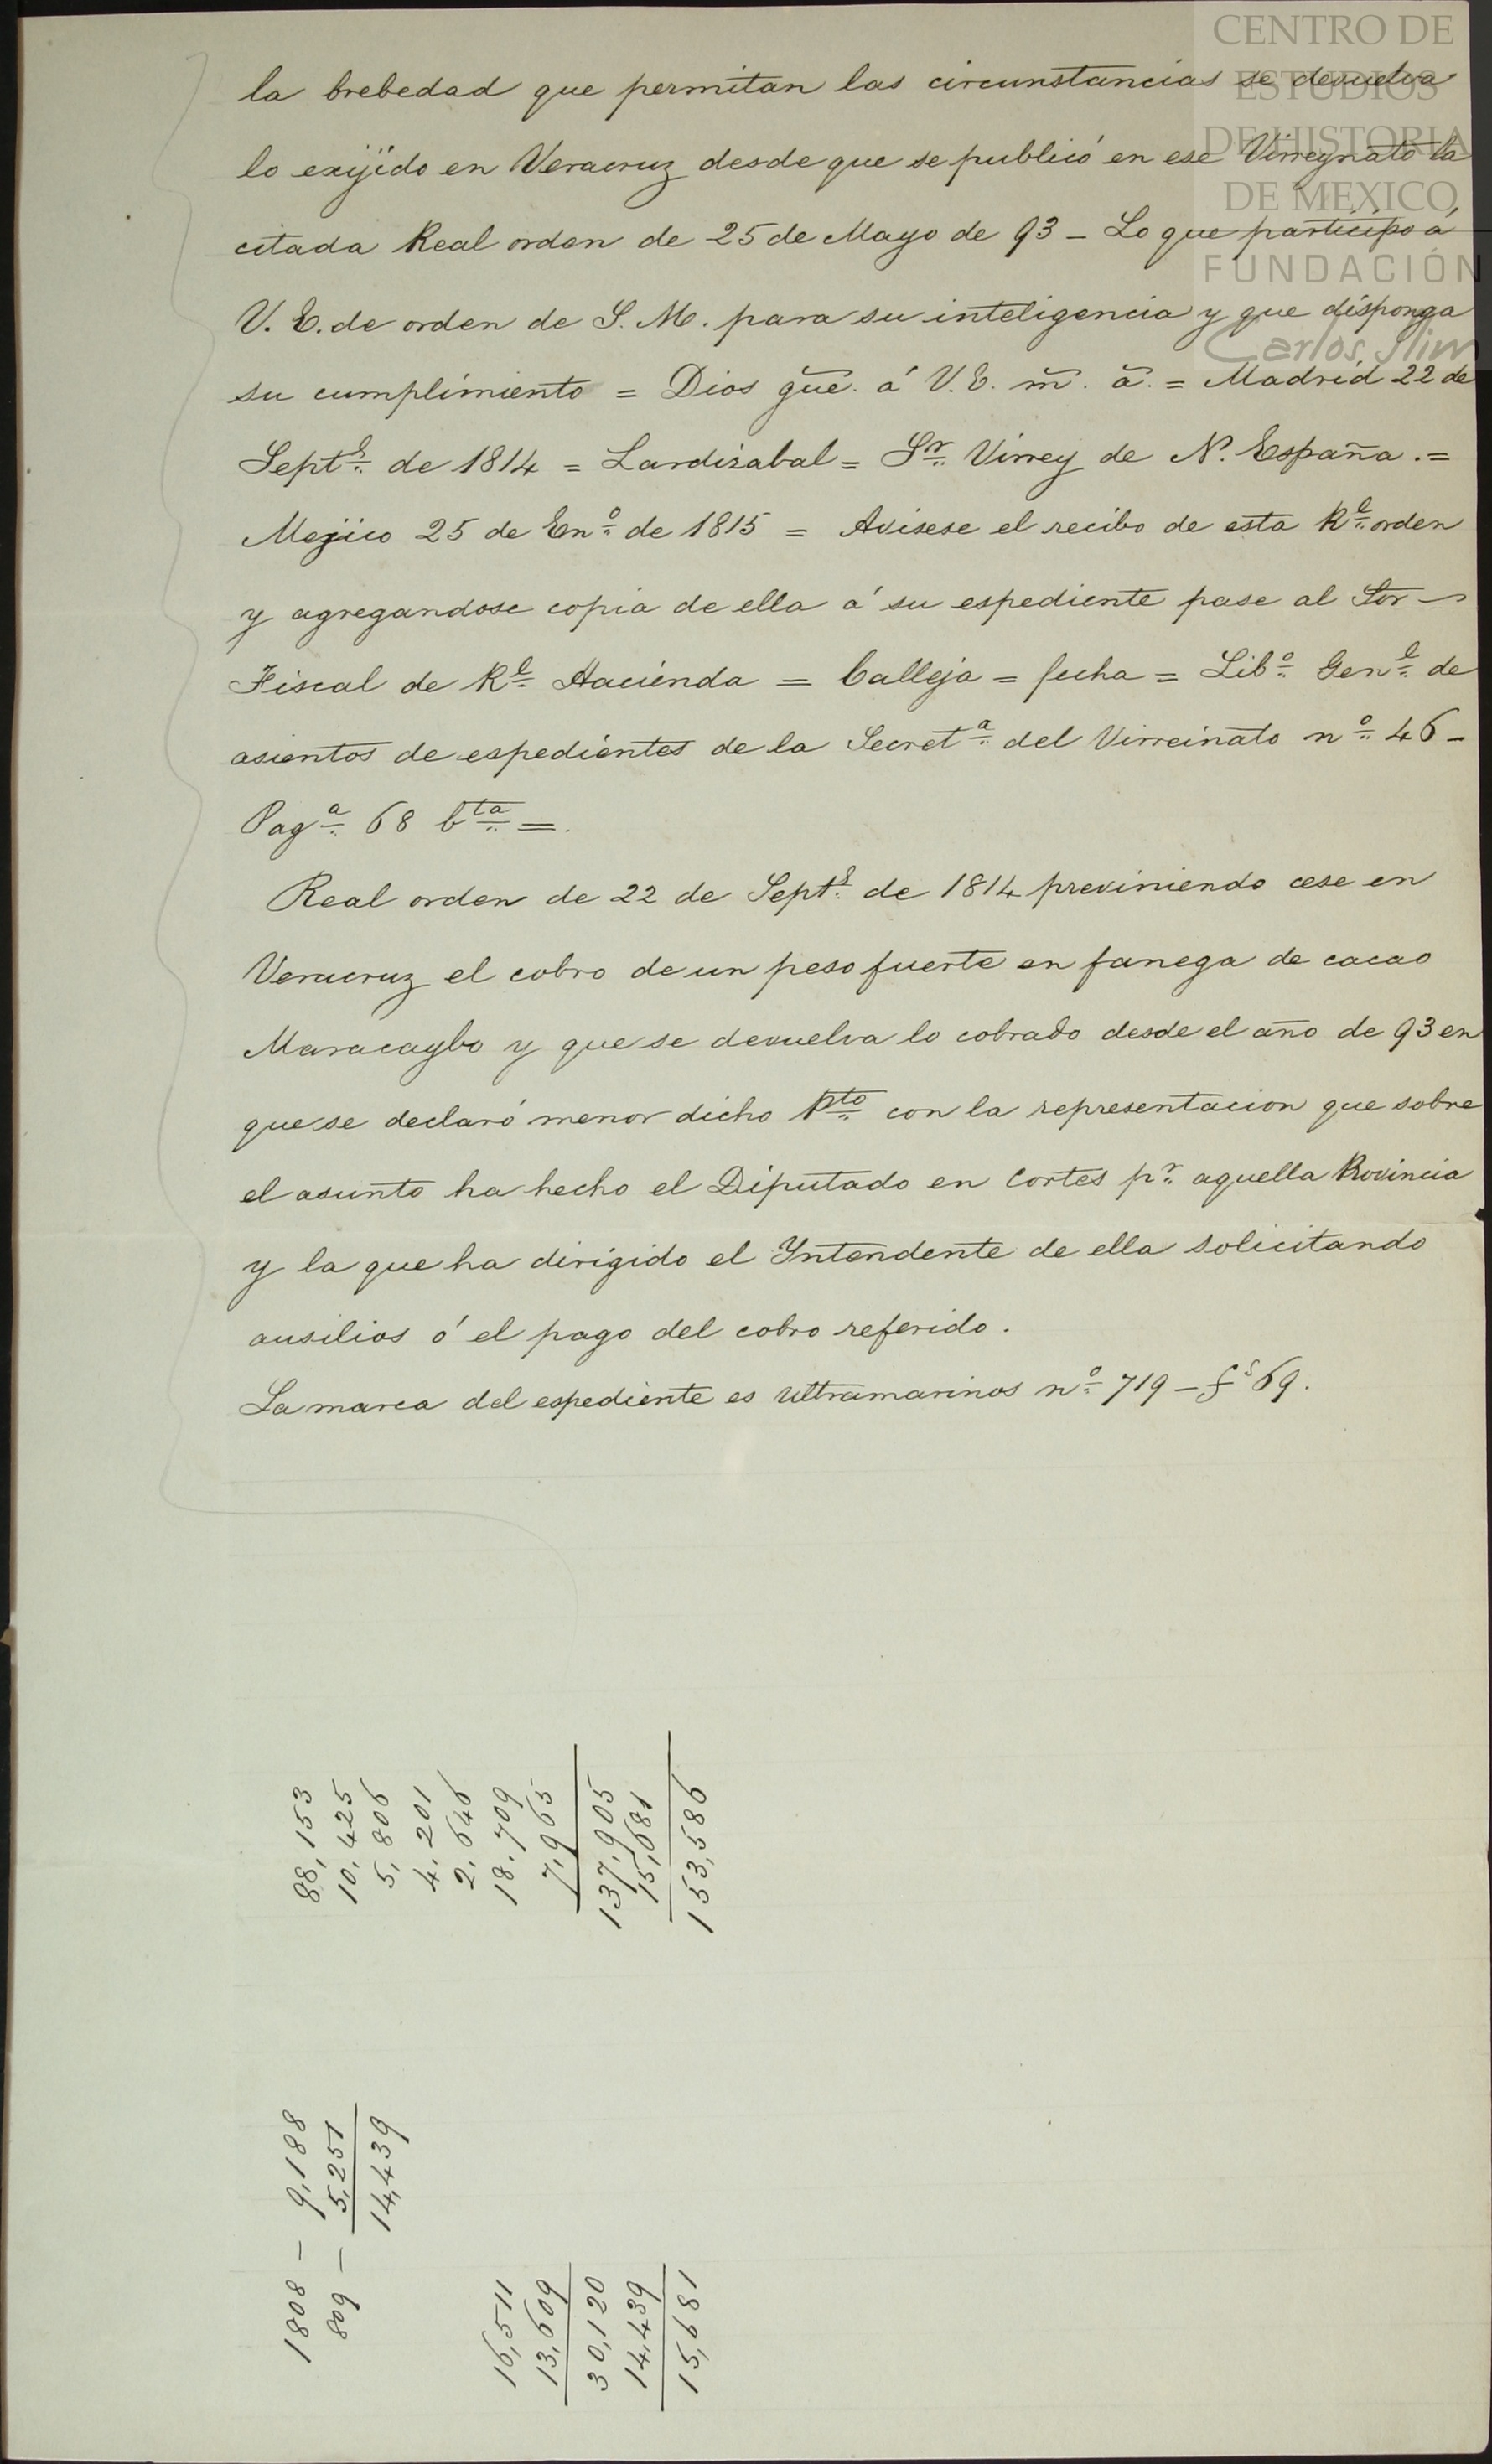 la brebedad que permitan las circunstancias se devuelva
lo exijido en Veracruz desde que se publicó en ese Virreynato la
citada Real orden de 25 de Mayo de 93 - Lo que participo á
V. E. de orden de S. M. para su inteligencia y que disponga
su cumplimiento = Dios gũe. á V. E. m̃. ã. = Madrid 22 de
Septe. de 1814 = Lardizabal = Sr. Virrey de N. España. =
Mejico 25 de Eno. de 1815 = Avisese el recibo de esta Rl. orden
y agregandose copia de ella á su espediente pase al Sor
Fiscal de Rl. Hacienda = Calleja = fecha = Libo. Genl. de
asientos de espedientes de la Secreta. del Virreinato no. 46 -
Paga. 68 bta. =.
Real orden de 22 de Septe. de 1814 previniendo cese en
Veracruz el cobro de un peso fuerte en fanega de cacao
Maracaybo y que se devuelva lo cobrado desde el año de 93 en
que se declaró menor dicho Pto. con la representacion que sobre
el asunto ha hecho el Diputado en Cortes pr. aquella Provincia
y la que ha dirigido el Yntendente de ella solicitando
ausilios ó el pago del cobro referido.
La marca del espediente es Ultramarinos no. 719 - fs 69.
88,153
10,425
5,806
4,201
2,646
18,709
7,965
137,905
15,681
153,586
1808 - 9,188
809 - 5,251
14,439
16,511
13,609
30,120
14,439
15,681
CENTRO DE
ESTUDIOS
DE HISTORIA
DE MEXICO
FUNDACIÓN
Carlos Slim